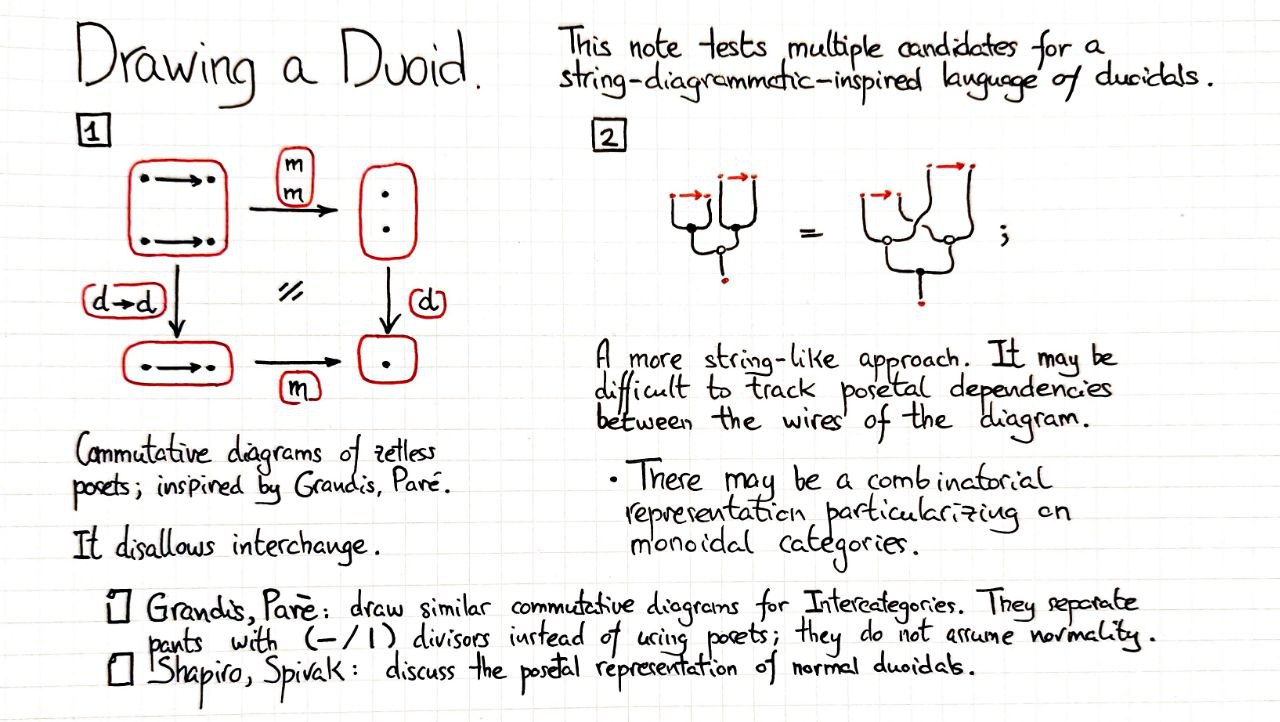 Drawing a Duoid.
This note tests multiple candidates for a
string-diagrammatic-inspired language of duoidals.
1
m
m
d→d
d
m
Commutative diagrams of zetless
posets; inspired by Grandis, Paré.
It disallows interchange.
2
=
;
A more string-like approach. It may be
difficult to track posetal dependencies
between the wires of the diagram.
• There may be a combinatorial
representation particularizing on
monoidal categories.
Grandis, Paré: draw similar commutative diagrams for Intercategories. They separate
pants with (-/|) divisors instead of using posets; they do not assume normality.
Shapiro, Spivak: discuss the posetal representation of normal duoidals.